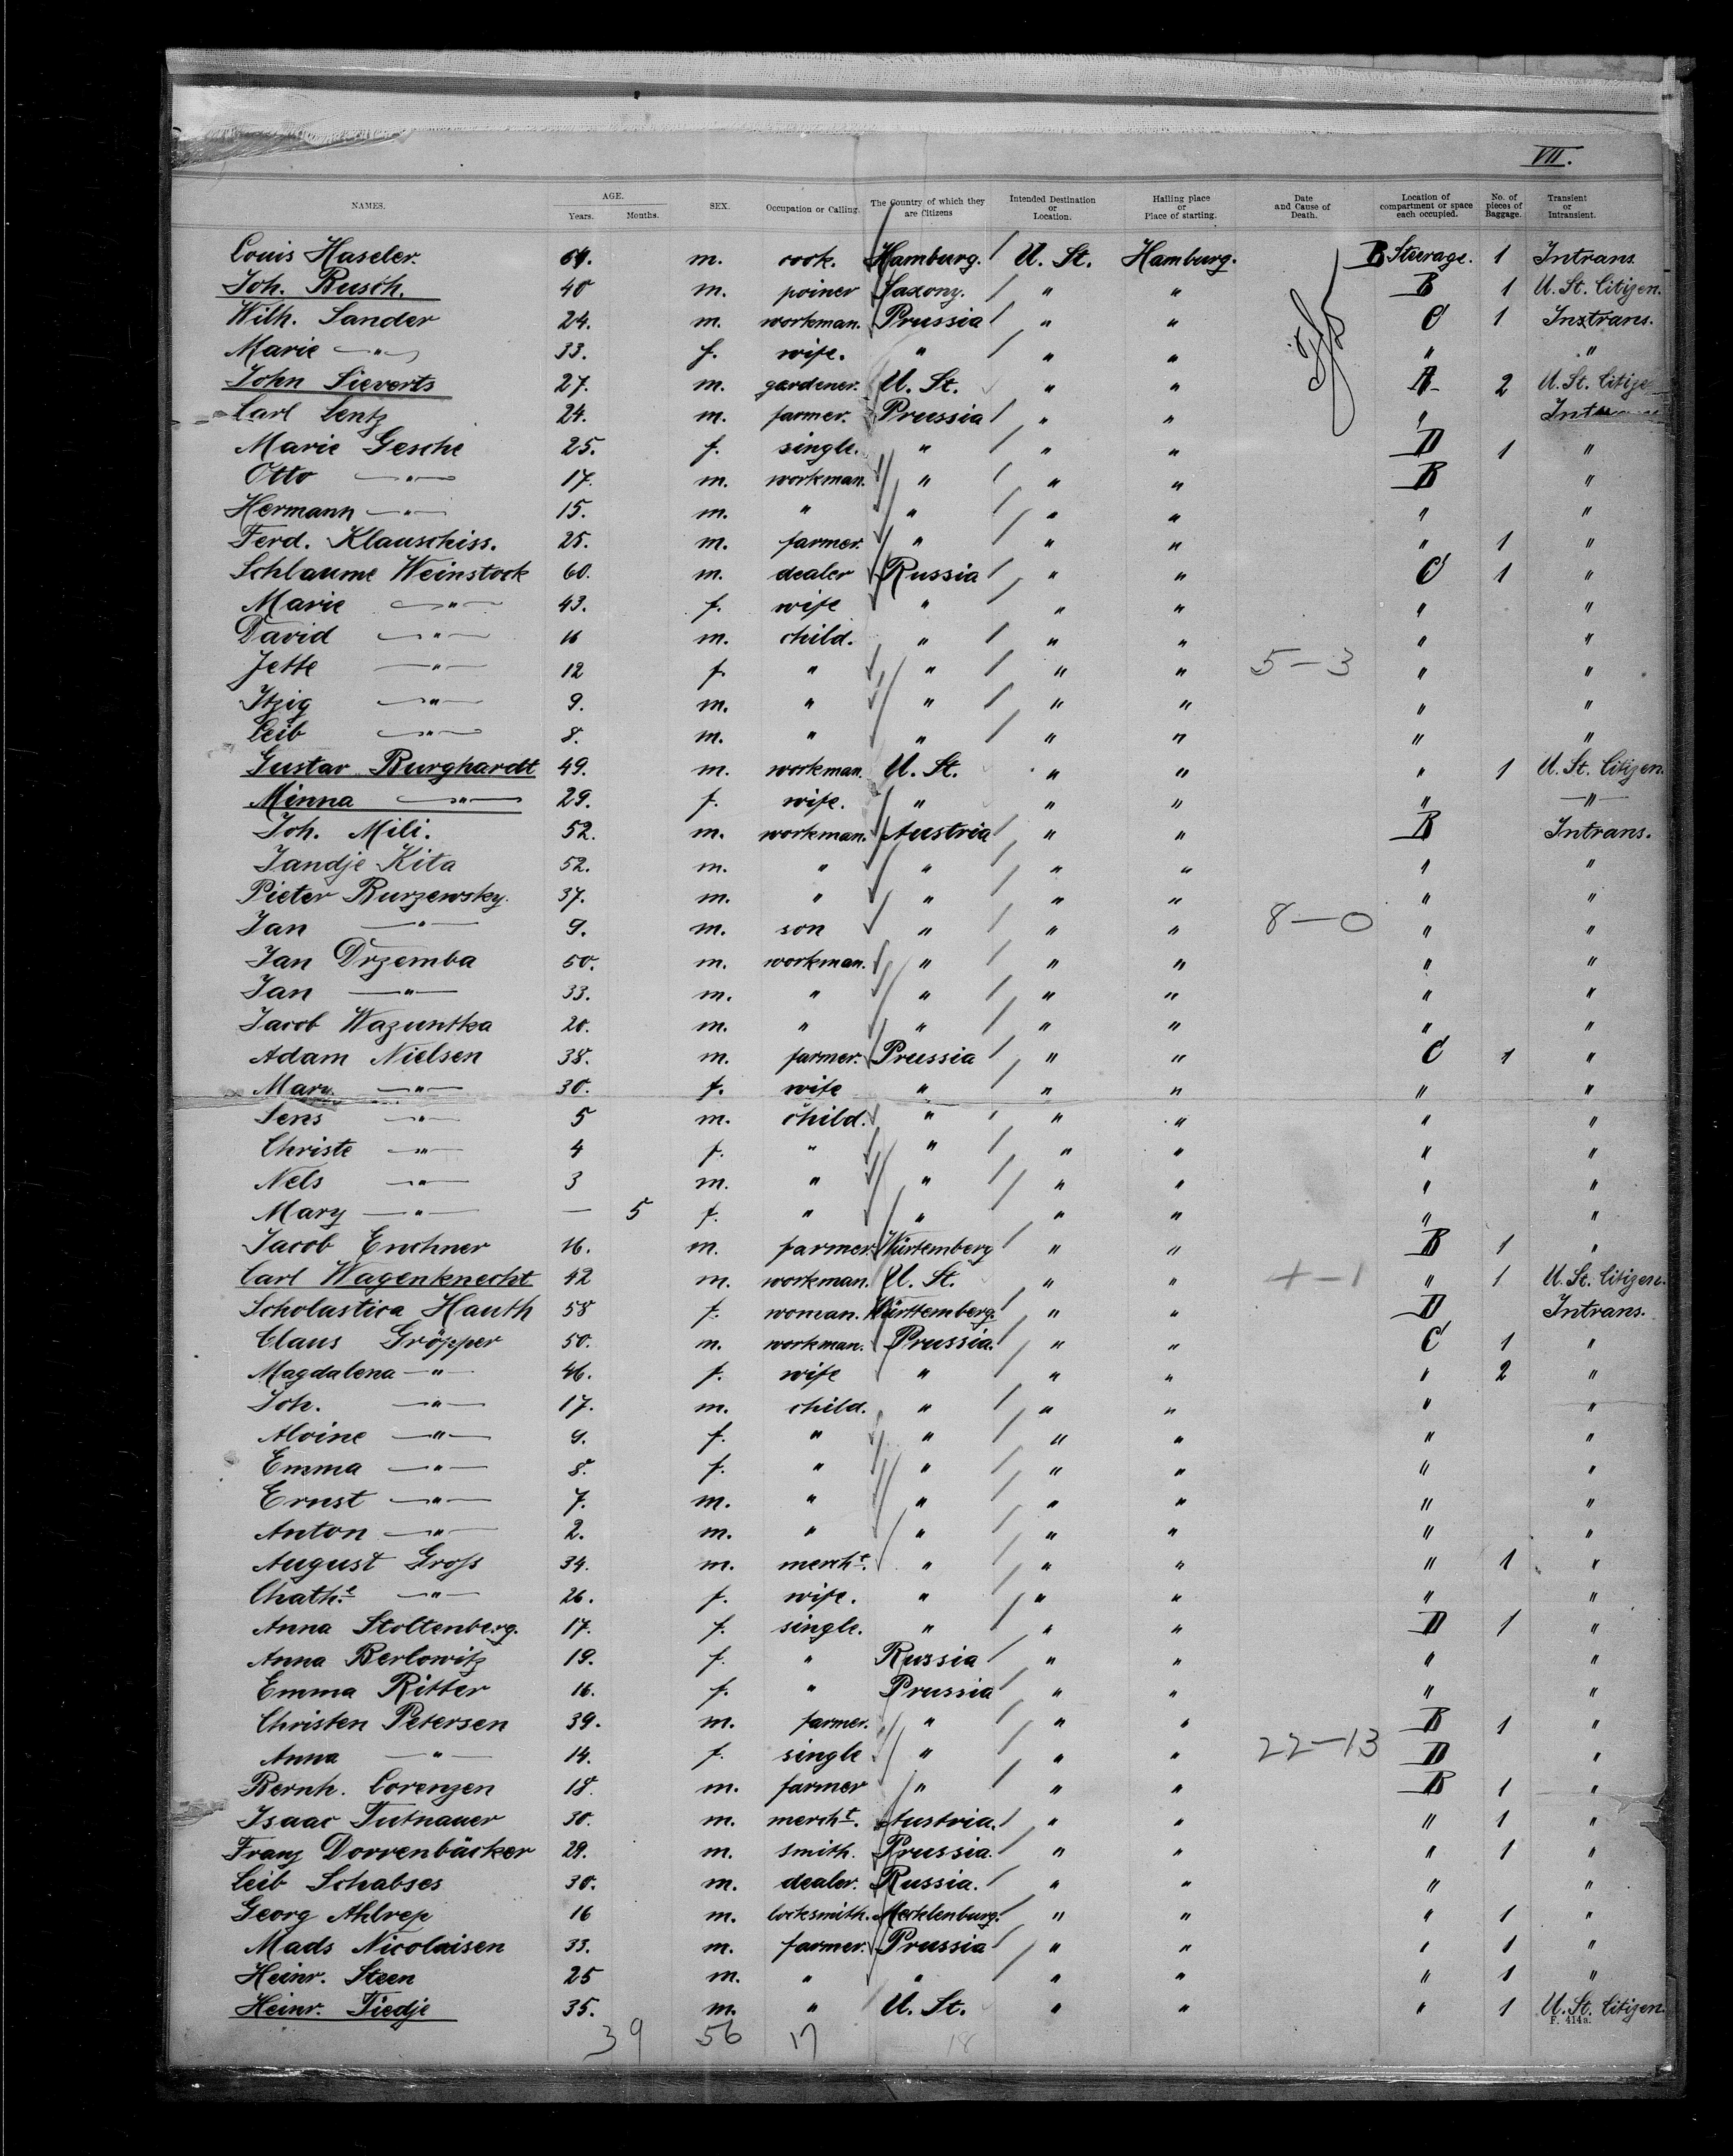 VII.
NAMES. AGE. Years. Months. SEX. Occupation or Calling. The Country of which they are Citizens Intended Destination or Location. Hailing place or Place of starting. Date and Cause of Death. Location of compartment or space each occupied. No. of pieces of Baggage. Transient or Intransient.
Louis Haseler. 64. m. cook. Hamburg. U. St. Hamburg. B Steerage. 1 Intrans.
Joh. Busch. 40 m. poiner Saxony. " " B 1 U. St. Citizen.
Wilh. Sander 24. m. workman. Prussia " " C 1 Instrans.
Marie —"— 33. f. wife. " " " " "
John Sieverts 27. m. gardener. U. St. " " A 2 U. St. Citize
Carl Lentz 24. m. farmer. Prussia " " "
Marie Gesche 25. f. single. " " " D 1 "
Otto —"— 17. m. workman. " " " B "
Hermann —"— 15. m. " " " " " "
Ferd. Klauschiss. 25. m. farmer. " " " " 1 "
Schlaume Weinstock 60. m. dealer Russia " " C 1 "
Marie —"— 43. f. wife " " " " "
David —"— m. child. " " " " "
Jette —"— 12 f. " " " " 5-3 " "
Itzig —"— 9. m. " " " " " "
Leib —"— 8. m. " " " " " "
Gustav Burghardt 49. m. workman. U. St. " " " 1 U. St. Citizen.
Minna —"— 29. f. wife. " " " " —"—
Joh. Mili. 52. m. workman. Austria " " B Intrans.
Jandje Kita 52. m. " " " " " "
Pieter Burzewsky. 37. m. " " " " " "
Jan —"— 9. m. son " " " 8-0 " "
Jan Drzemba 50. m. workman. " " " " "
Jan —"— 33. m. " " " " " "
Jacob Wazuntka 20. m. " " " " " "
Adam Nielsen 38. m. farmer. Prussia " " C 1 "
Mary. —"— 30. f. wife " " " " "
Jens —"— 5 m. child. " " " " "
Christe —"— 4 f. " " " " " "
Nels —"— 3 m. " " " " " "
Mary —"— — 5 f. " " " " " "
Jacob Enchner m. farmer. Würtemberg " " B 1 "
Carl Wagenknecht 42 m. workman. U. St. " " 4-1 " 1 U. St. Citizen.
Scholastica Hauth 58 f. woman. Württemberg. " " D Intrans.
Claus Gröpper 50. m. workman. Prussia. " " C 1 "
Magdalena —"— 46. f. wife " " " " 2 "
Joh. —"— 17. m. child. " " " " "
Alvine —"— 9. f. " " " " " "
Emma —"— 8. f. " " " " " "
Ernst —"— 7. m. " " " " " "
Anton —"— 2. m. " " " " " "
August Gross 34. m. mercht. " " " " 1 "
Chathe —"— 26. f. wife. " " " " "
Anna Stoltenberg. 17. f. single. " " " D 1 "
Anna Berlowitz 19. f. " Russia " " " "
Emma Ritter 16. f. " Prussia " " " "
Christen Petersen 39. m. farmer. " " " B 1 "
Anna —"— 14. f. single " " " 22-13 D "
Bernh. Lorenzen 18. m. farmer " " " B 1 "
Isaac Tutnauer 30. m. mercht. Austria. " " " 1 "
Franz Dorrenbäcker 29. m. smith. Prussia. " " " 1 "
Leib Schabses 30. m. dealer. Russia. " " " "
Georg Ahlrep 16 m. locksmith. Mecklenburg. " " " 1 "
Mads Nicolaisen 33. m. farmer. Prussia " " " 1 "
Heinr. Steen 25 m. " " " " " 1 "
Heinr. Tiedje 35. m. " U. St. " " " 1 U. St. Citizen.
F. 414a.
39 56 17 18